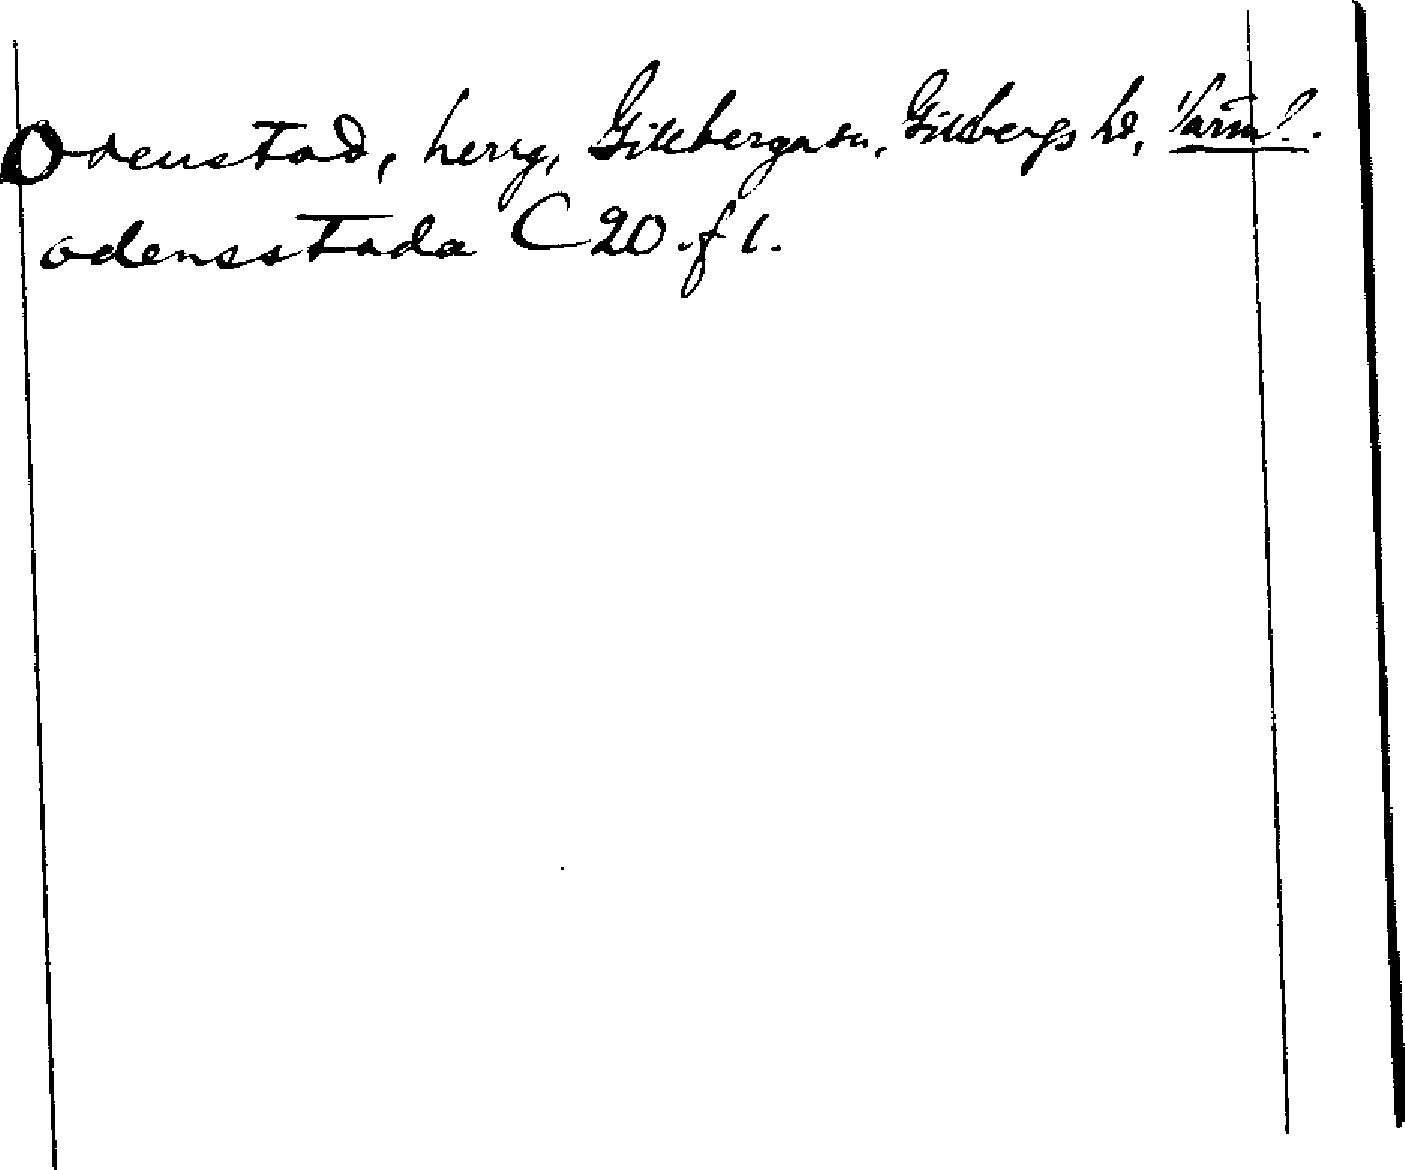 Odenstad, herrg, Gillberga sn, Gillbergs hd, Värml.
odensstada C 20 f 1.